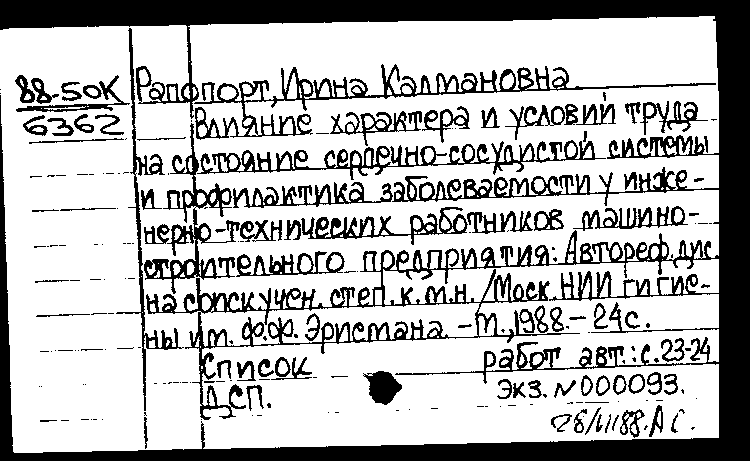 88-50К Рапопорт, Ирина Калмановна.
6362 Влияние характера и условий труда
на состояние сердечно-сосудистой системы
и профилактика заболеваемости у инже-
нерно-технических работников машино-
строительного предприятия: Автореф. дис.
на соиск. учен. степ. к.м.н. /Моск. НИИ гигие-
ны им. Ф.Ф. Эрисмана. - М., 1988. - 24с.
Список работ авт.: с. 23-24
ДСП. Экз. N000093.